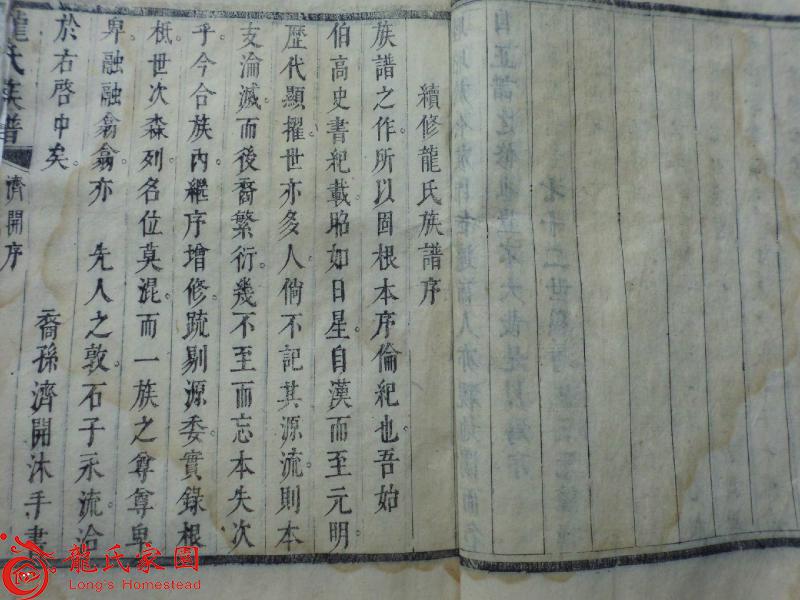 續修龍氏族譜序
族譜之作所以固根本序倫紀也吾始
伯高史書紀載昭如日星自漢而至元明
歷代顯擢世亦多人倘不記其源流則本
支淪滅而後裔繁衍幾不至而忘本失次
乎今合族內繼序增修疏剔源委實錄根
柢世次森列名位莫混而一族之尊尊卑
卑融融翕翕亦 先人之敦石子永流洽
於右啓中矣
裔孫濟開沐手書
龍氏族譜
濟開序
龍氏家園
Long's Homestead